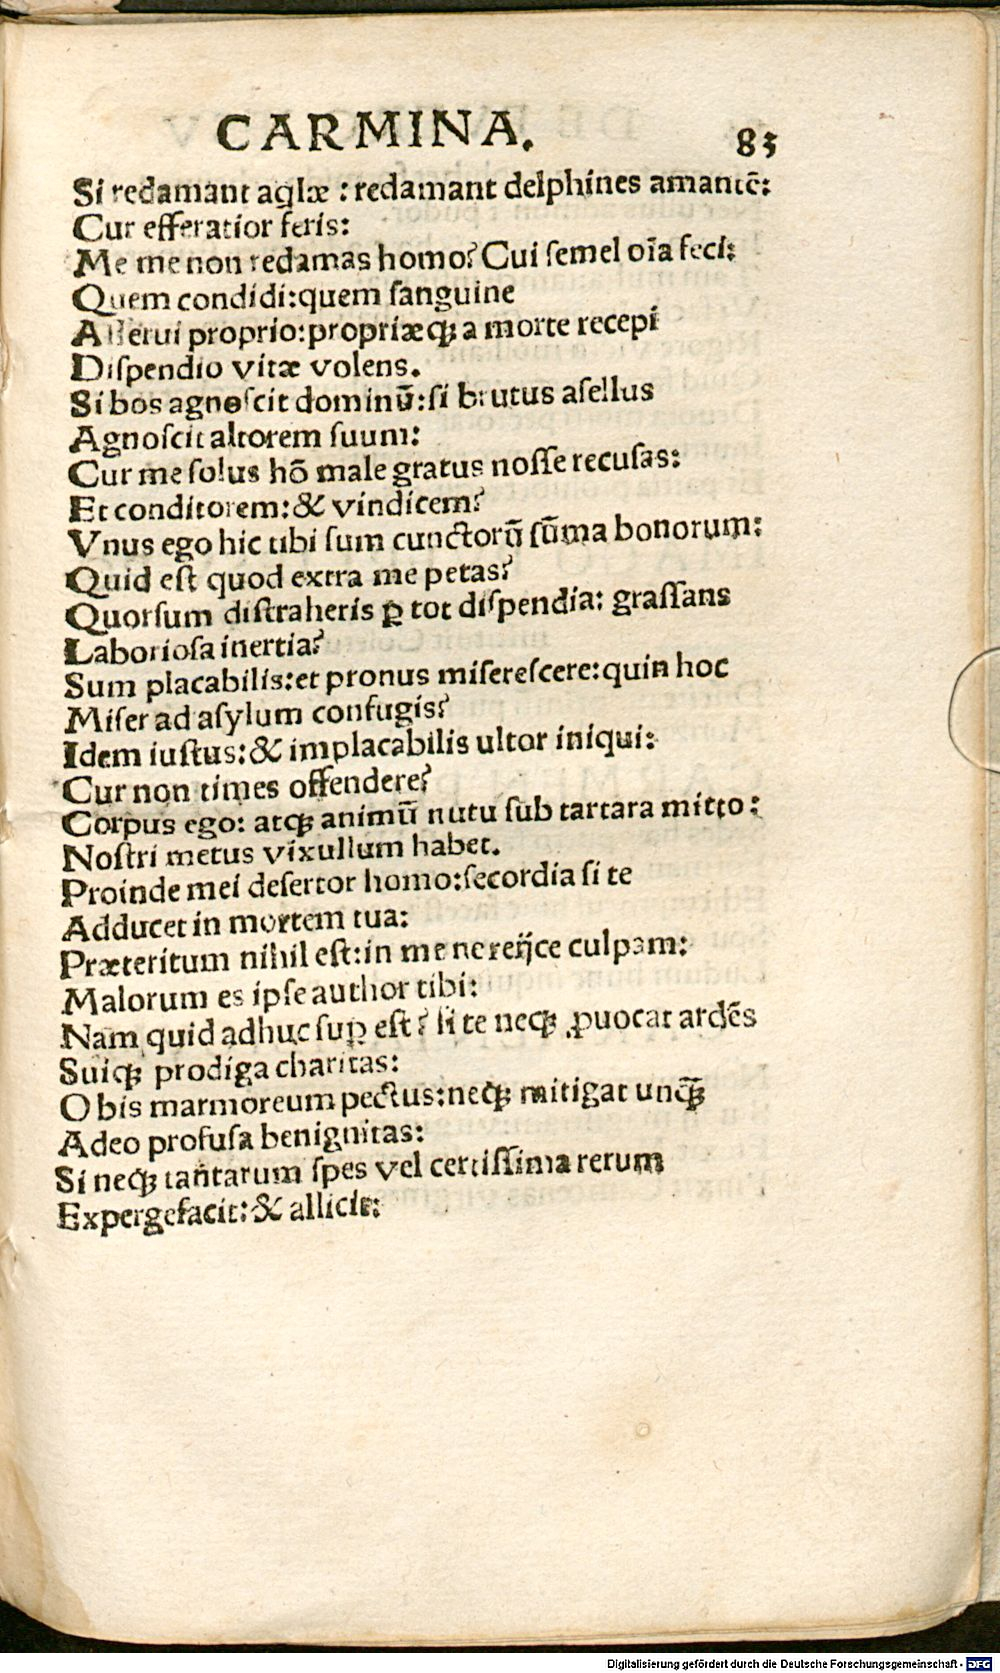 CARMINA.
83
Si redamant aqlæ : redamant delphines amantē:
Cur efferatior feris:
Me me non redamas homo? Cui semel oīa feci:
Quem condidi: quem sanguine
Asserui proprio: propriæqꝫ a morte recepi
Dispendio vitæ volens.
Si bos agnoscit dominū: si brutus asellus
Agnoscit altorem suum:
Cur me solus hō male gratus nosse recusas:
Et conditorem: & vindicem?
Vnus ego hic tibi sum cunctorū sūma bonorum:
Quid est quod extra me petas?
Quorsum distraheris ꝑ tot dispendia: grassans
Laboriosa inertia?
Sum placabilis: et pronus miserescere: quin hoc
Miser ad asylum confugis?
Idem iustus: & implacabilis ultor iniqui:
Cur non times offendere?
Corpus ego: atqꝫ animū nutu sub tartara mitto:
Nostri metus vix ullum habet.
Proinde mei desertor homo: secordia si te
Adducet in mortem tua:
Præteritum nihil est: in me ne reijce culpam:
Malorum es ipse author tibi:
Nam quid adhuc suꝑ est? si te neqꝫ ꝓuocat ardēs
Suiqꝫ prodiga charitas:
O bis marmoreum pectus: neqꝫ mitigat unqꝫ̄
Adeo profusa benignitas:
Si neqꝫ tantarum spes vel certissima rerum
Expergefacit: & allicit:
Digitalisierung gefördert durch die Deutsche Forschungsgemeinschaft - DFG